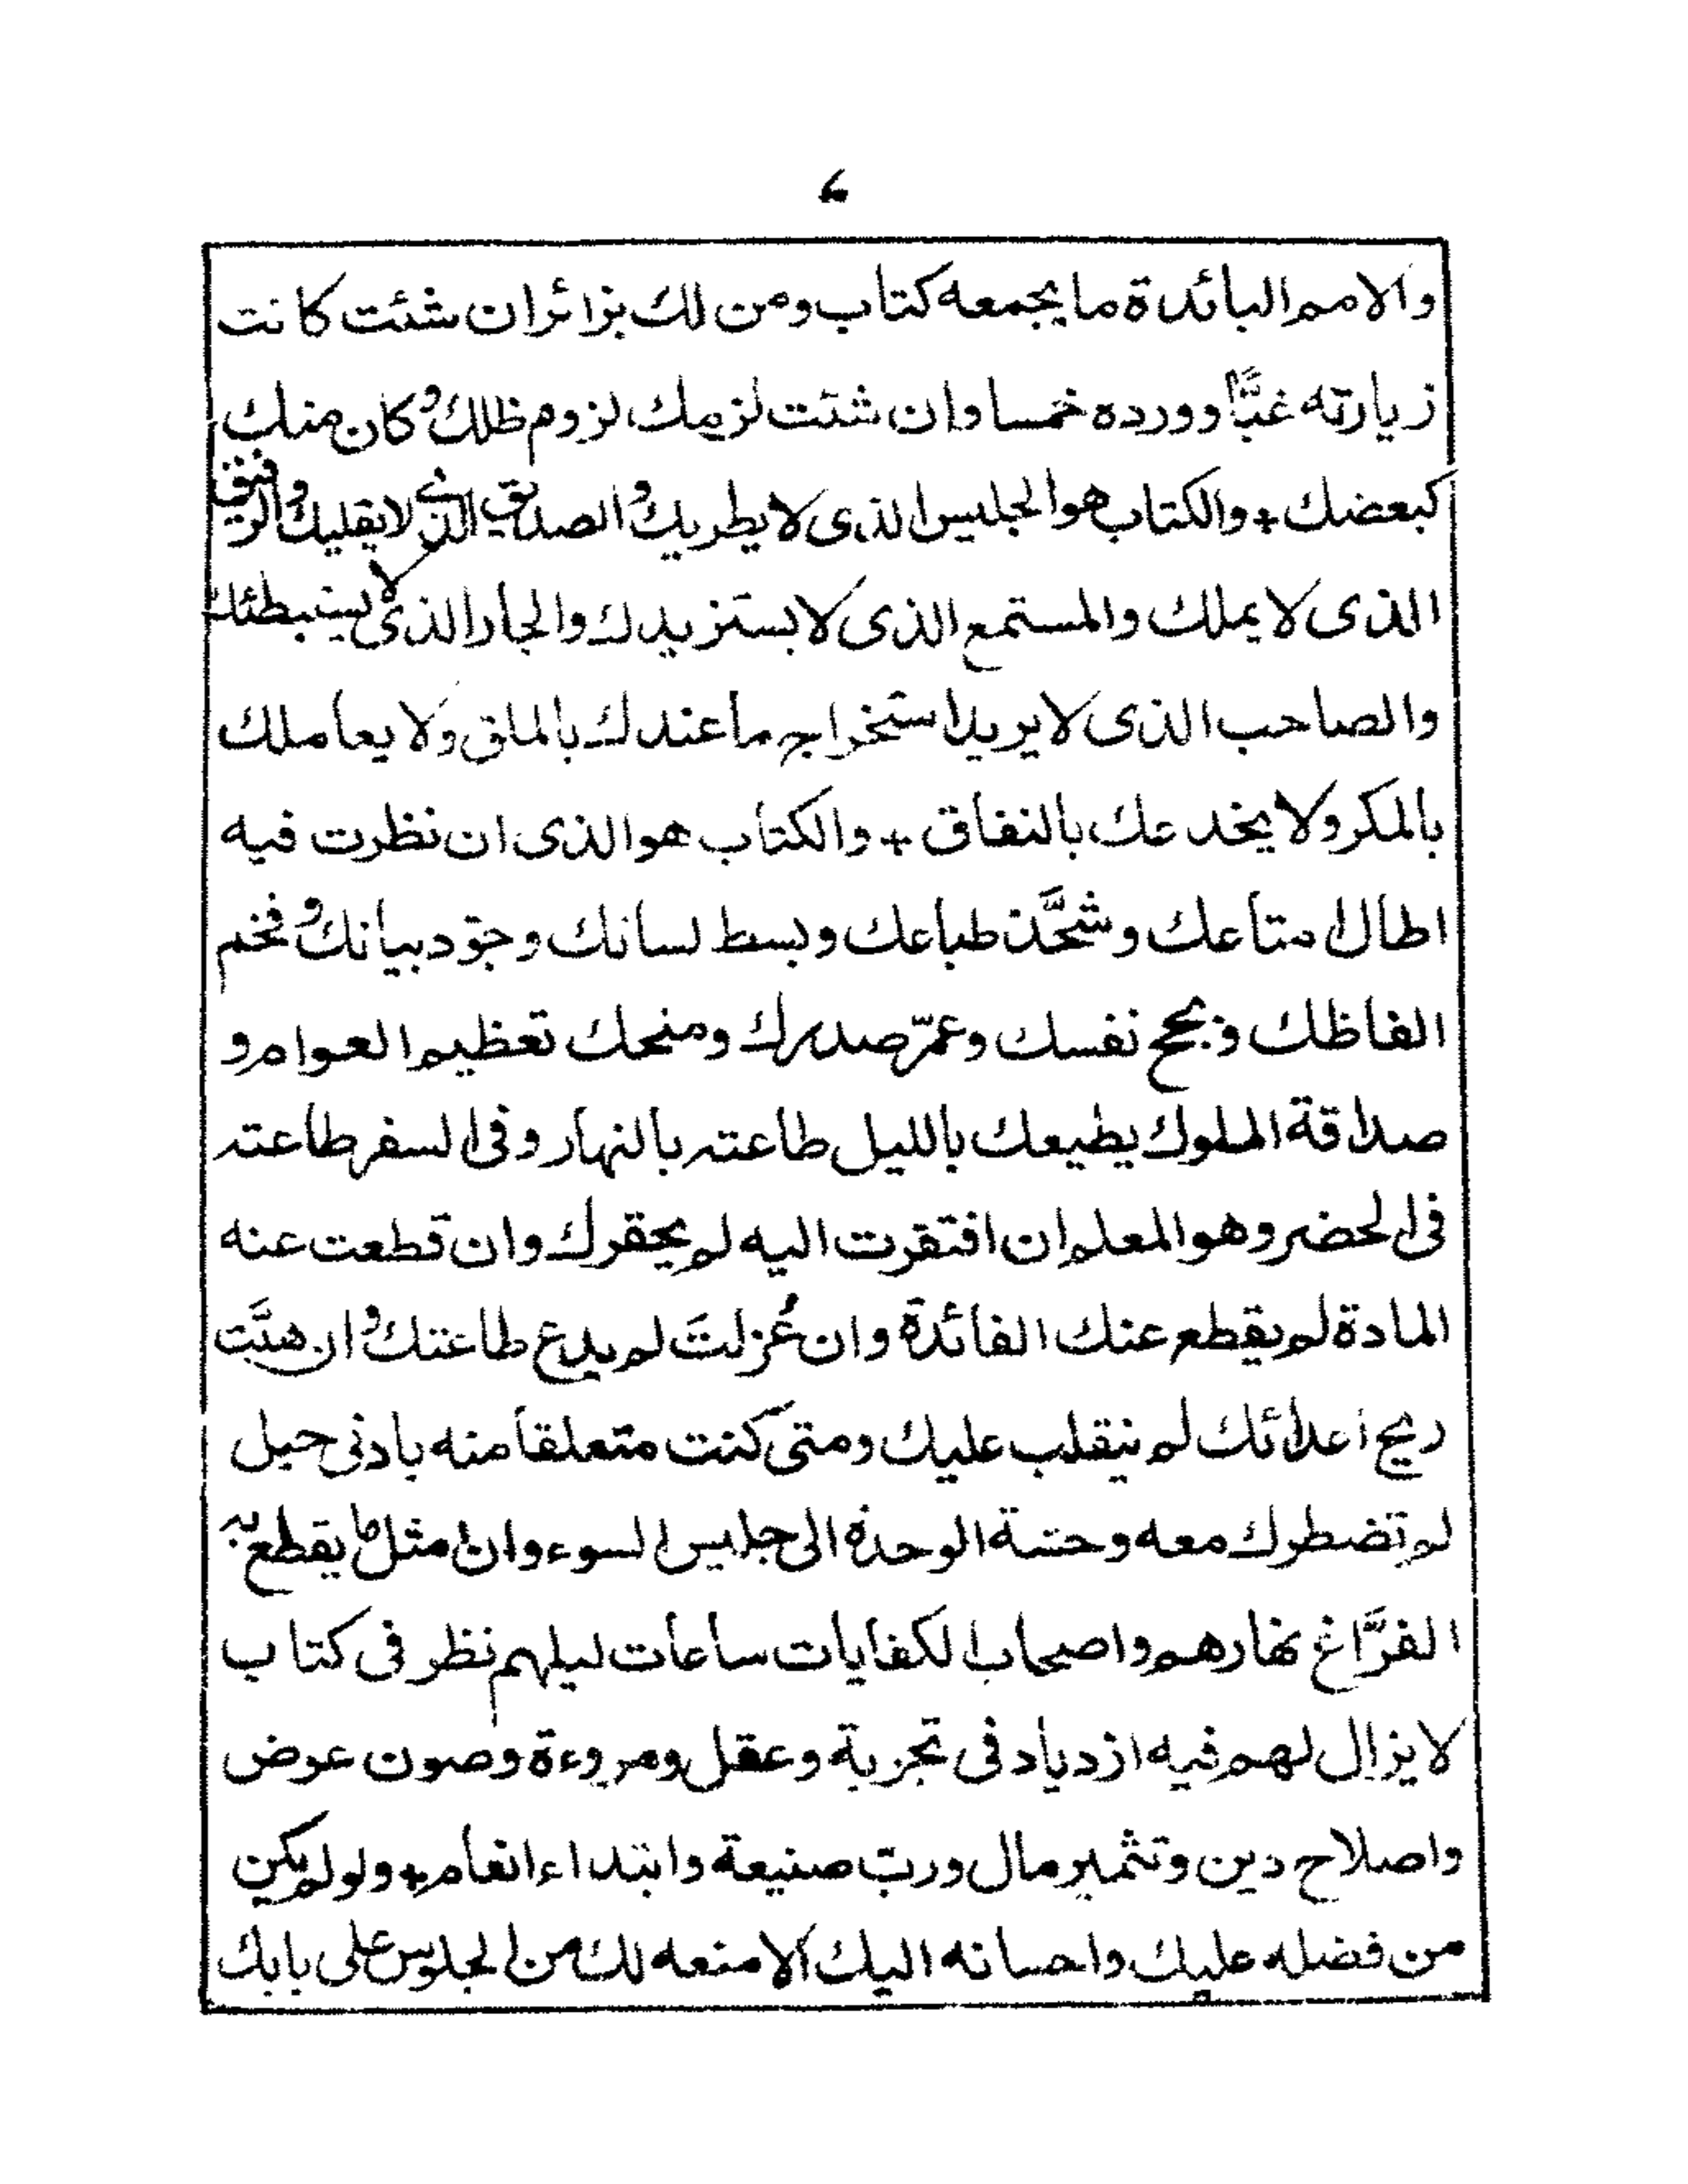 ٤
والامم البائدة ما يجمعه كتاب ومن لك بزائر ان شئت كانت
زيارته غبًّا وورده خمسا وان شئت لزمك لزوم ظلك وكان منك
كبعضك + والكتاب هو الجليس الذى لا يطريك والصديق الذى لا يقليك والرفيق
الذى لا يملك والمستمع الذى لا يستزيدك والجار الذى لا يستبطئك
والصاحب الذى لا يريد استخراج ما عندك بالملق ولا يعاملك
بالمكر ولا يخدعك بالنفاق + والكتاب هو الذى ان نظرت فيه
اطال متاعك وشحَّذ طباعك وبسط لسانك وجوّد بيانك وفخم
الفاظك وبجح نفسك وعمّر صدرك ومنحك تعظيم العوام و
صداقة الملوك يطيعك بالليل طاعته بالنهار وفى السفر طاعته
فى الحضر وهو المعلم ان افتقرت اليه لم يحقرك وان قطعت عنه
المادة لم يقطع عنك الفائدة وان عُزلتَ لم يدع طاعتك وان هبَّت
ريح اعدائك لم ينقلب عليك ومتى كنت متعلقا منه بادنى حبل
لم تضطرك معه وحشة الوحدة الى جليس السوء وان مثل ما يقطع به
الفرَّاغ نهارهم واصحاب الكفايات ساعات ليلهم نظر فى كتاب
لا يزال لهم فيه ازدياد فى تجربة وعقل ومروءة وصون عرض
واصلاح دين وتثمير مال وربّ صنيعة وابتداء انعام + ولو لم يكن
من فضله عليك واحسانه اليك الا منعه لك من الجلوس على بابك